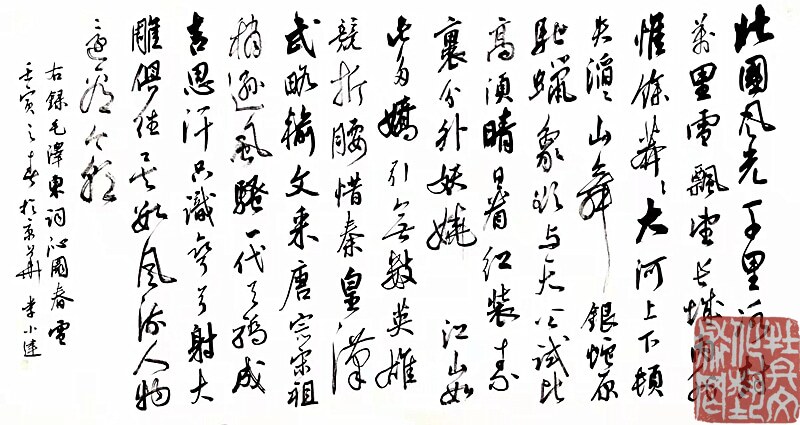 北國风光千里冰封
萬里雪飄望长城内外
惟餘莽〻大河上下頓
失滔〻山舞銀蛇原
馳蠟象欲与天公試比
高須晴日看红装素
裹分外妖嬈江山如
此多嬌引无數英雄
競折腰惜秦皇漢
武略輸文采唐宗宋祖
稍遜風騷一代天驕成
吉思汗只識彎弓射大
雕俱往矣數风流人物
還看今朝
右録毛澤東詞沁園春雪
壬寅之春於京華李小